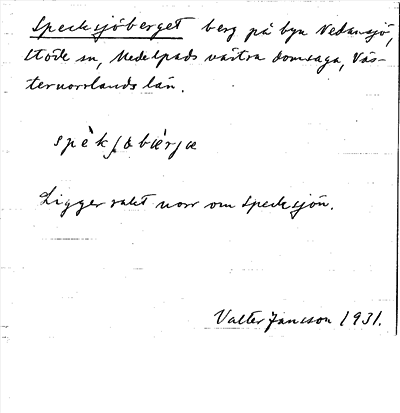 Specksjöberget berg på byn Nedansjö,
Stöde sn, Medelpads västra domsaga, Väs-
ternorrlands län.
spèkʃøbærjæ
Ligger rakt norr om Specksjön.
Valter Jansson 1931.